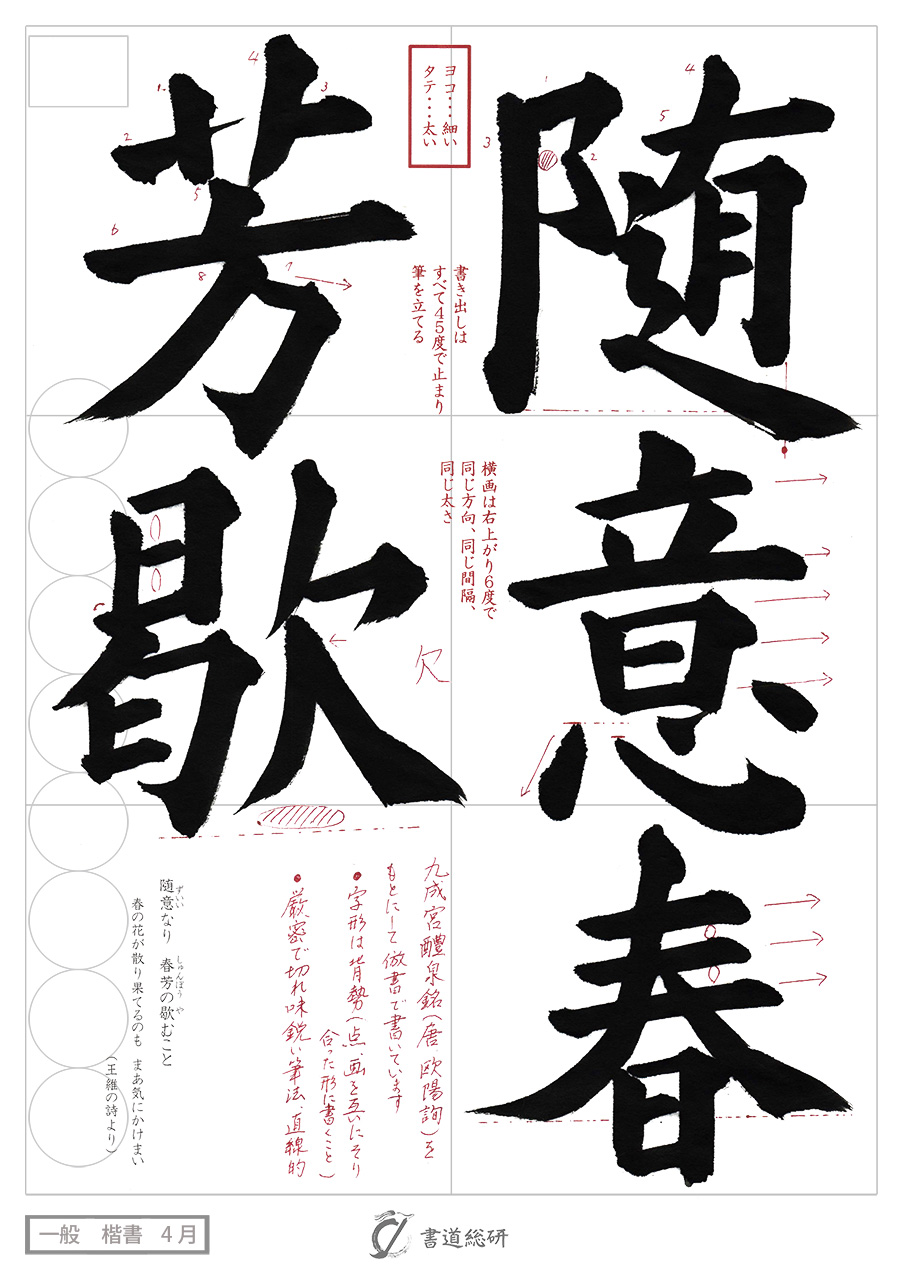 随意春
芳歇
ヨコ・・・細い
タテ・・・太い
書き出しは
すべて45度で止まり
筆を立てる
横画は右上がり6度で
同じ方向、同じ間隔、
同じ太さ
1
2
3
4
5
1
2
3
4
5
6
7
8
欠
九成宮醴泉銘(唐・欧陽詢)を
もとにして倣書で書いています
●字形は背勢(点・画を互いにそり
合った形に書くこと)
●厳密で切れ味鋭い筆法・直線的
随意なり 春芳の歇むこと
ずいい しゅんぽう や
春の花が散り果てるのも まあ気にかけまい
(王維の詩より)
一般 楷書 4月
書道総研